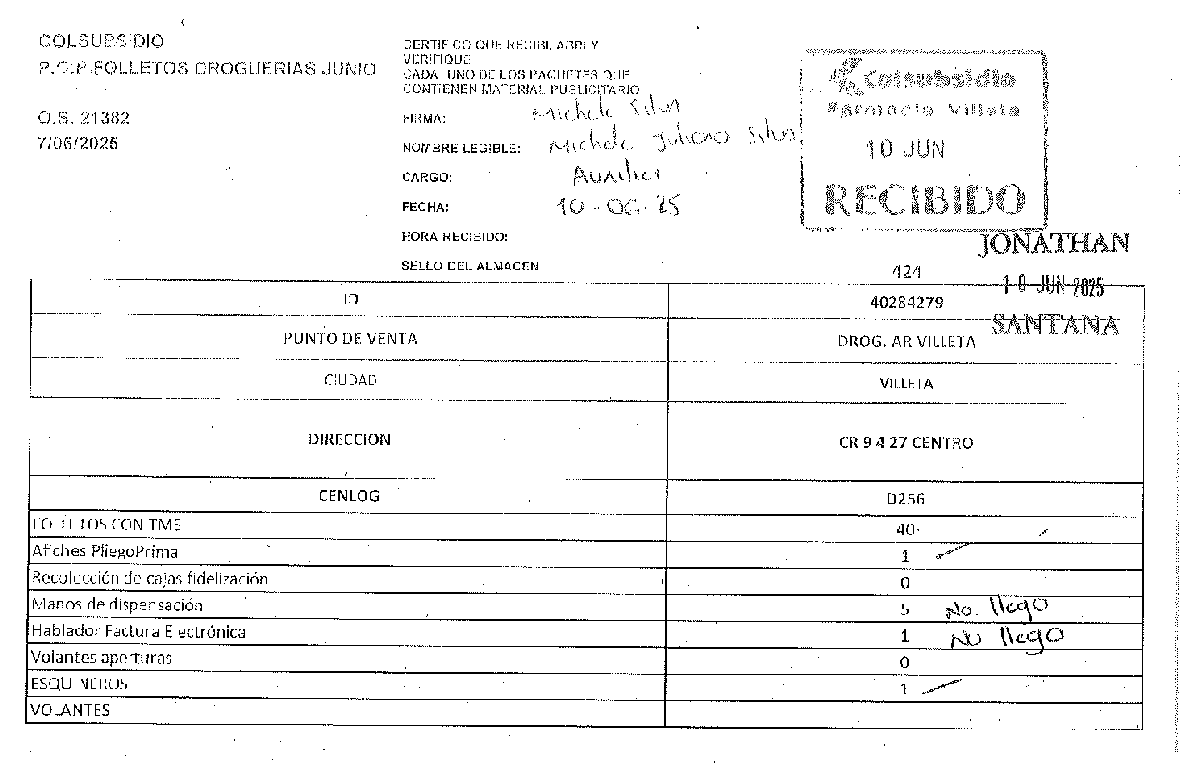 COLSUBSIDIO
P.O.P FOLLETOS DROGUERIAS JUNIO
O.S. 21382
7/06/2025
CERTIFICO QUE RECIBI, ABRI Y
VERIFIQUE
CADA UNO DE LOS PAQUETES QUE
CONTIENEN MATERIAL PUBLICITARIO
FIRMA: Michele Silva
NOMBRE LEGIBLE: Michele Juliana Silva
CARGO: Auxiliar
FECHA: 10-06-25
HORA RECIBIDO:
SELLO DEL ALMACEN
Colsubsidio
Farmacia Villeta
10 JUN
RECIBIDO
JONATHAN
10 JUN 2025
SANTANA
424
ID 40284279
PUNTO DE VENTA DROG. AR VILLETA
CIUDAD VILLETA
DIRECCION CR 9 4 27 CENTRO
CENLOG D256
FOLLETOS CON TME 40
Afiches PliegoPrima 1
Recolección de cajas fidelización 0
Manos de dispensación 5 No llego
Hablador Factura Electrónica 1 No llego
Volantes aperturas 0
ESQUINEROS 1
VOLANTES